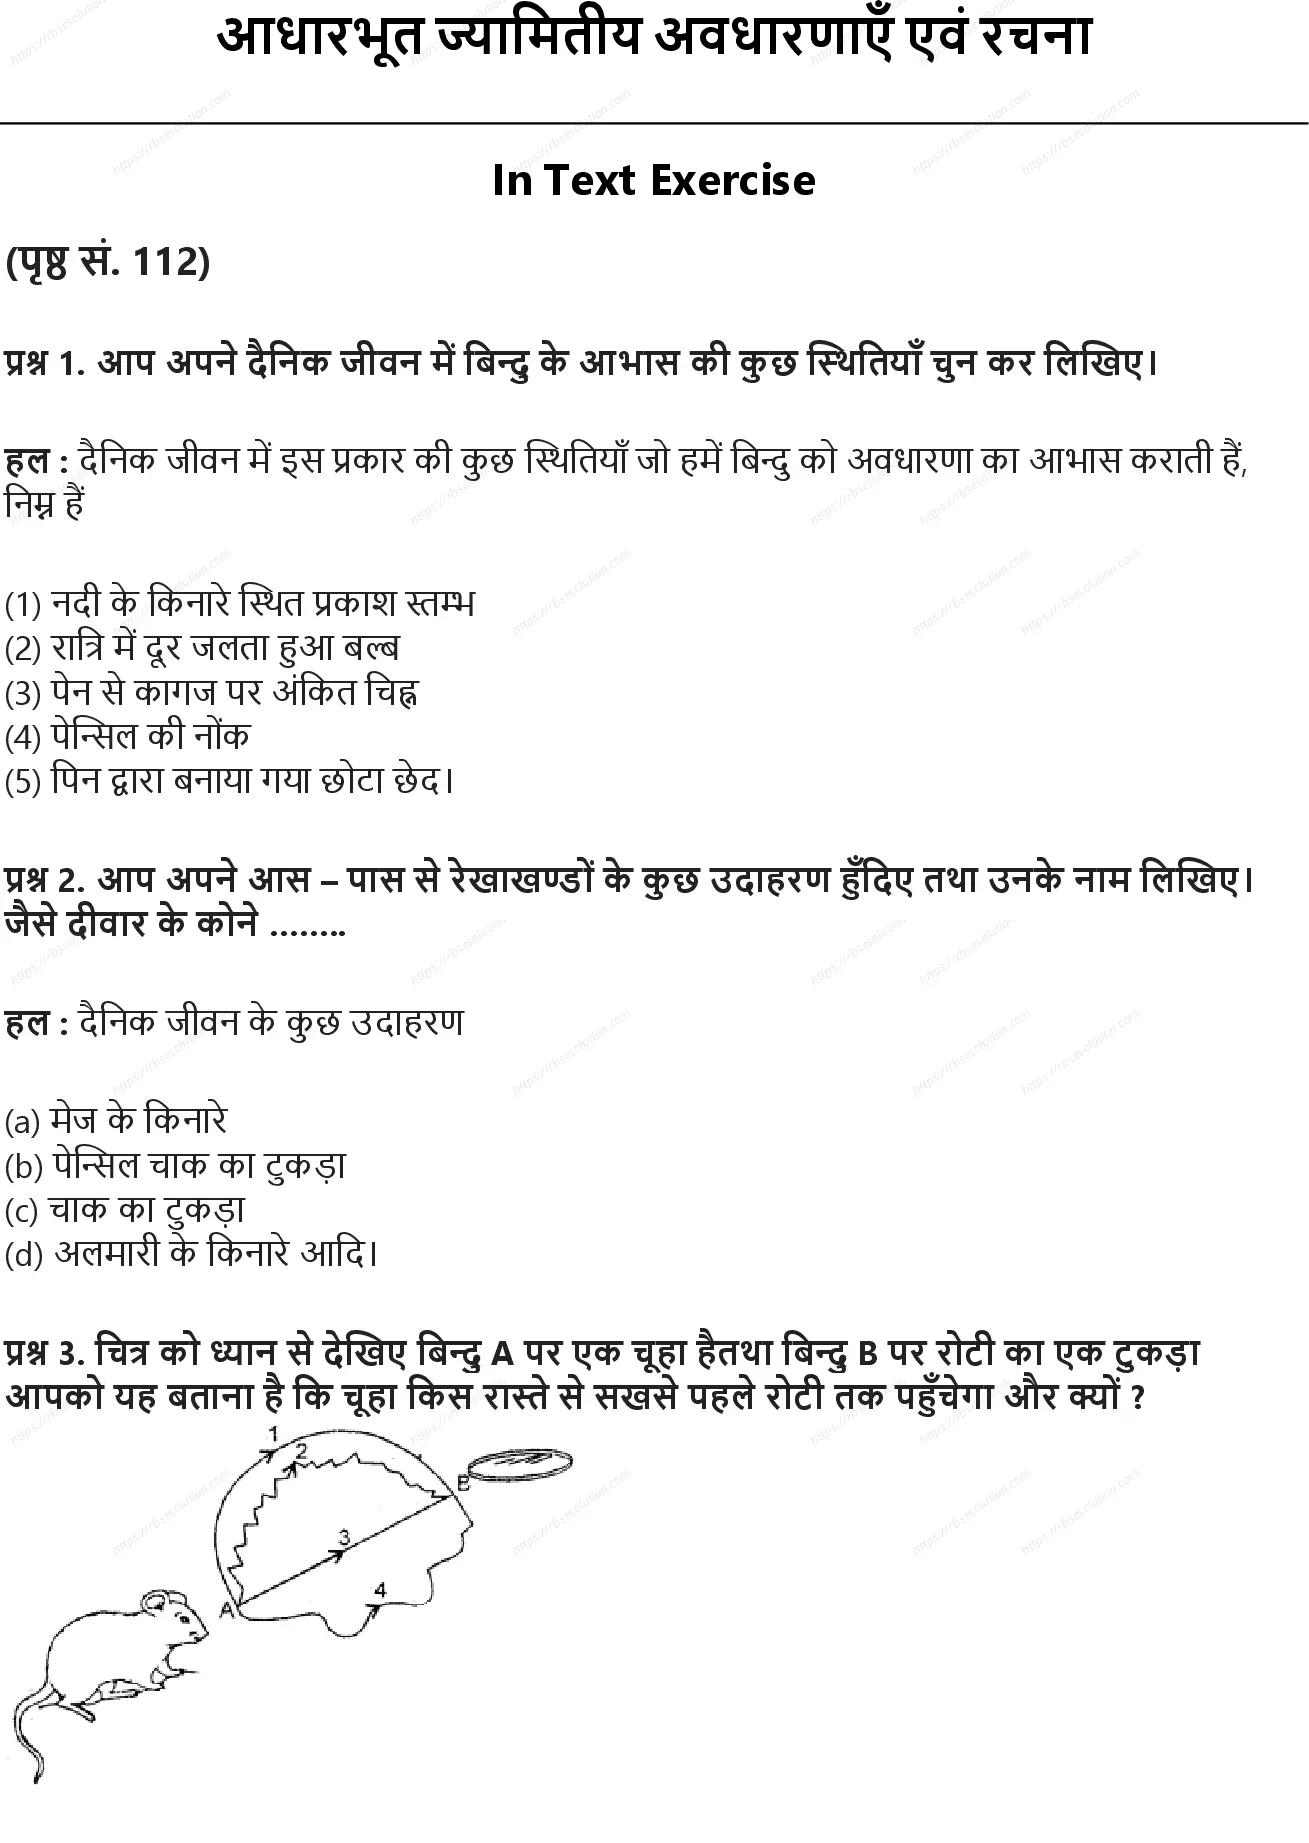 आधारभूत ज्यामितीय अवधारणाएँ एवं रचना
In Text Exercise
(पृष्ठ सं. 112)
प्रश्न 1. आप अपने दैनिक जीवन में बिन्दु के आभास की कुछ स्थितियाँ चुन कर लिखिए।
हल : दैनिक जीवन में इस प्रकार की कुछ स्थितियाँ जो हमें बिन्दु को अवधारणा का आभास कराती हैं,
निम्न हैं
(1) नदी के किनारे स्थित प्रकाश स्तम्भ
(2) रात्रि में दूर जलता हुआ बल्ब
(3) पेन से कागज पर अंकित चिह्न
(4) पेन्सिल की नोंक
(5) पिन द्वारा बनाया गया छोटा छेद।
प्रश्न 2. आप अपने आस – पास से रेखाखण्डों के कुछ उदाहरण हुँदिए तथा उनके नाम लिखिए।
जैसे दीवार के कोने ……..
हल : दैनिक जीवन के कुछ उदाहरण
(a) मेज के किनारे
(b) पेन्सिल चाक का टुकड़ा
(c) चाक का टुकड़ा
(d) अलमारी के किनारे आदि।
प्रश्न 3. चित्र को ध्यान से देखिए बिन्दु A पर एक चूहा हैतथा बिन्दु B पर रोटी का एक टुकड़ा
आपको यह बताना है कि चूहा किस रास्ते से सखसे पहले रोटी तक पहुँचेगा और क्यों ?
1
2
B
3
4
A
https://rbsesolution.com